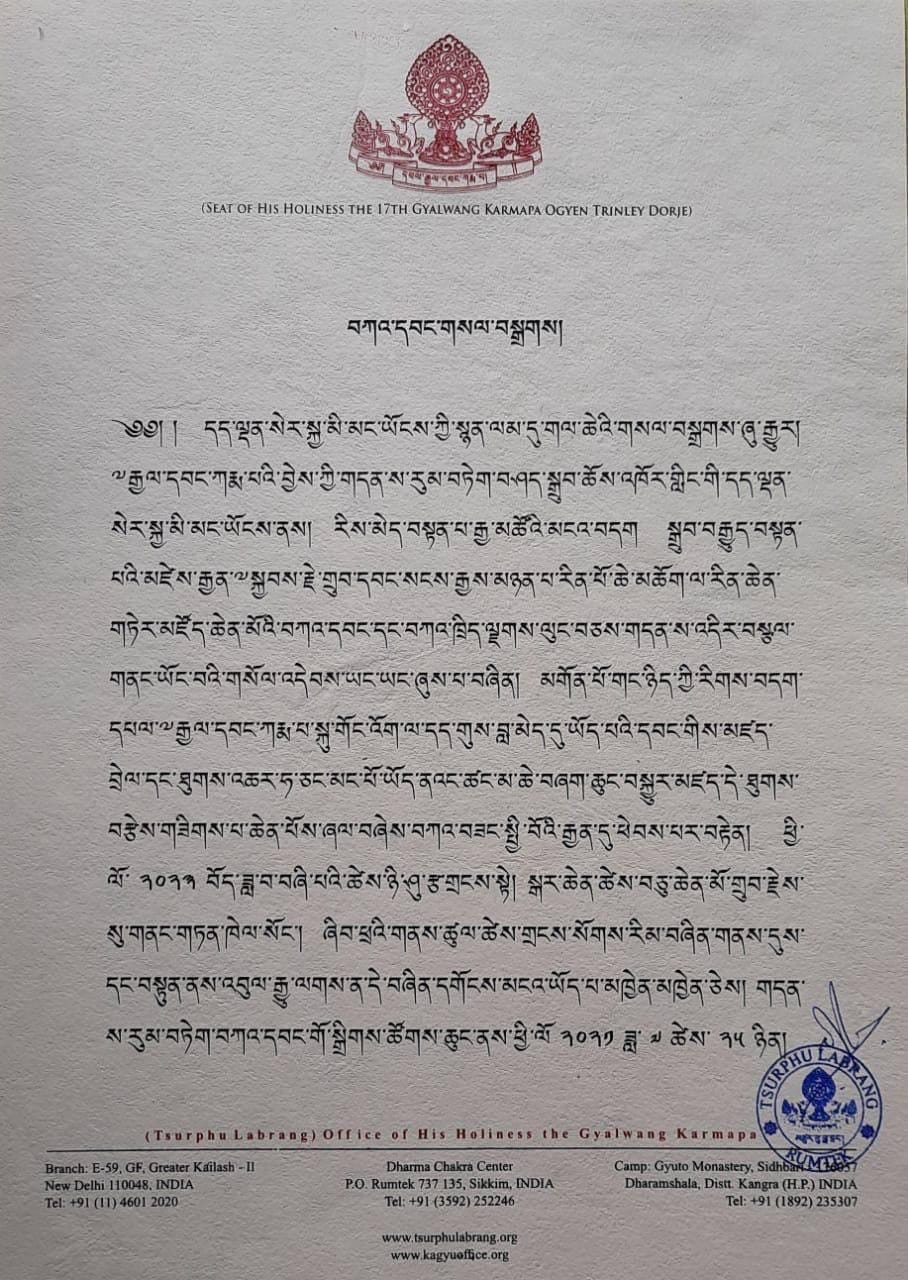 དཔལ་རྒྱལ་དབང་ཀརྨ་པ།
(SEAT OF HIS HOLINESS THE 17TH GYALWANG KARMAPA OGYEN TRINLEY DORJE)
བཀའ་དབང་གསལ་བསྒྲགས།
༄༅། །དད་ལྡན་སེར་སྐྱ་མི་མང་ཡོངས་ཀྱི་སྙན་ལམ་དུ་གལ་ཆེའི་གསལ་བསྒྲགས་ཞུ་རྒྱུར།
༧རྒྱལ་དབང་ཀརྨ་པའི་བྱེས་ཀྱི་གདན་ས་རུམ་བཏེག་བཤད་སྒྲུབ་ཆོས་འཁོར་གླིང་གི་དད་ལྡན་
སེར་སྐྱ་མི་མང་ཡོངས་ནས། རིས་མེད་བསྟན་པ་རྒྱ་མཚོའི་མངའ་བདག སྒྲུབ་བརྒྱུད་བསྟན་
པའི་མཛེས་རྒྱན་༧སྐྱབས་རྗེ་གྲུབ་དབང་སངས་རྒྱས་མཉན་པ་རིན་པོ་ཆེ་མཆོག་ལ་རིན་ཆེན་
གཏེར་མཛོད་ཆེན་མོའི་བཀའ་དབང་དང་བཀའ་ཁྲིད་ལྗགས་ལུང་བཅས་གདན་ས་འདིར་བསྩལ་
གནང་ཡོང་བའི་གསོལ་འདེབས་ཡང་ཡང་ཞུས་པ་བཞིན། མགོན་པོ་གང་ཉིད་ཀྱི་རིགས་བདག་
དཔལ་༧རྒྱལ་དབང་ཀརྨ་པ་སྐུ་གོང་འོག་ལ་དད་གུས་བླ་མེད་དུ་ཡོད་པའི་དབང་གིས་མཛད་
བྲེལ་དང་ཐུགས་འཆར་ཧ་ཅང་མང་པོ་ཡོད་ནའང་ཚང་མ་ཆེ་བཞག་ཆུང་བསྐྱུར་མཛད་དེ་ཐུགས་
བརྩེས་གཟིགས་པ་ཆེན་པོས་ཞལ་བཞེས་བཀའ་བཟང་སྤྱི་བོའི་རྒྱན་དུ་ཕེབས་པར་བརྟེན། ཕྱི་
ལོ་ ༢༠༢༣ བོད་ཟླ་བ་བཞི་པའི་ཚེས་ཉི་ཤུ་རྩ་གྲངས་སྟེ། སྒར་ཆེན་ཚེས་བཅུ་ཆེན་མོ་གྲུབ་རྗེས་
སུ་གནང་གཏན་ཁེལ་སོང་། ཞིབ་ཕྲའི་གནས་ཚུལ་ཚེས་གྲངས་སོགས་རིམ་བཞིན་གནས་དུས་
དང་བསྟུན་ནས་འབུལ་རྒྱུ་ལགས་ན་དེ་བཞིན་དགོངས་མངའ་ཡོད་པ་མཁྱེན་མཁྱེན་ཅེས། གདན་
ས་རུམ་བཏེག་བཀའ་དབང་གོ་སྒྲིགས་ཚོགས་ཆུང་ནས་ཕྱི་ལོ་ ༢༠༢༡ ཟླ་ ༧ ཚེས་ ༢༥ ཉིན།
TSURPHU LABRANG
RUMTEK
(Tsurphu Labrang) Office of His Holiness the Gyalwang Karmapa
Branch: E-59, GF, Greater Kailash - II
New Delhi 110048, INDIA
Tel: +91 (11) 4601 2020
Dharma Chakra Center
P.O. Rumtek 737 135, Sikkim, INDIA
Tel: +91 (3592) 252246
Camp: Gyuto Monastery, Sidhbari - 176057
Dharamshala, Distt. Kangra (H.P.) INDIA
Tel: +91 (1892) 235307
www.tsurphulabrang.org
www.kagyuoffice.org